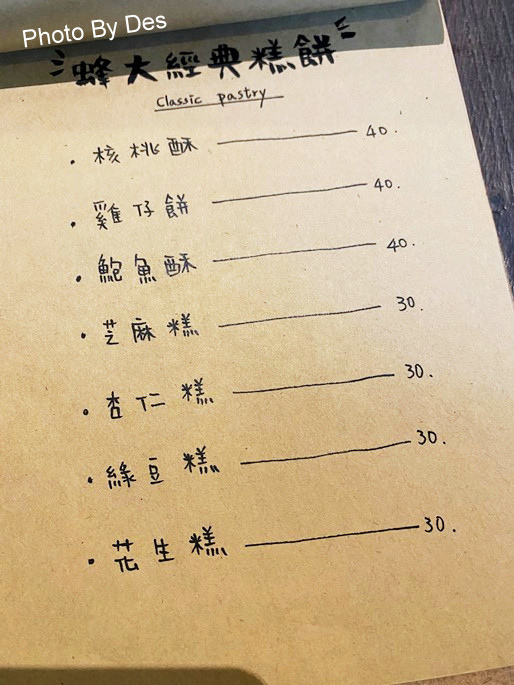 Photo By Des
蜂大經典糕餅
Classic pastry
· 核桃酥 40.
· 雞仔餅 40.
· 鮑魚酥 40.
· 芝麻糕 30.
· 杏仁糕 30.
· 綠豆糕 30.
· 花生糕 30.